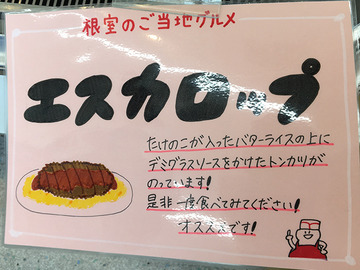 根室のご当地グルメ
エスカロップ
たけのこが入ったバターライスの上に
デミグラスソースをかけたトンカツが
のっています!
是非一度食べてみてください!
オススメです!